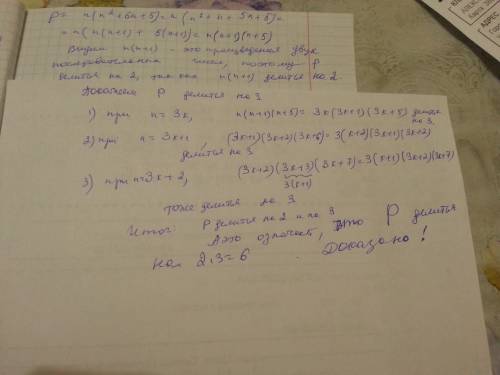 P = n(n²+6n+5) = n(n²+n+5n+5) =
= n(n(n+1) + 5(n+1)) = n(n+1)(n+5)
Видим n(n+1) - это произведение двух
последовательных чисел, поэтому P
делится на 2, так как n(n+1) делится на 2.
Докажем P делится на 3
1) при n = 3k, n(n+1)(n+5) = 3k(3k+1)(3k+5) делится
на 3.
2) при n = 3k+1, (3k+1)(3k+2)(3k+6) = 3(k+2)(3k+1)(3k+2)
делится на 3
3) при n=3k+2, (3k+2)(3k+3)(3k+7)=3(k+1)(3k+2)(3k+7)
3(k+1)
тоже делится на 3
Итог: P делится на 2 и на 3
А это означает, что P делится
на 2·3=6 Доказано!